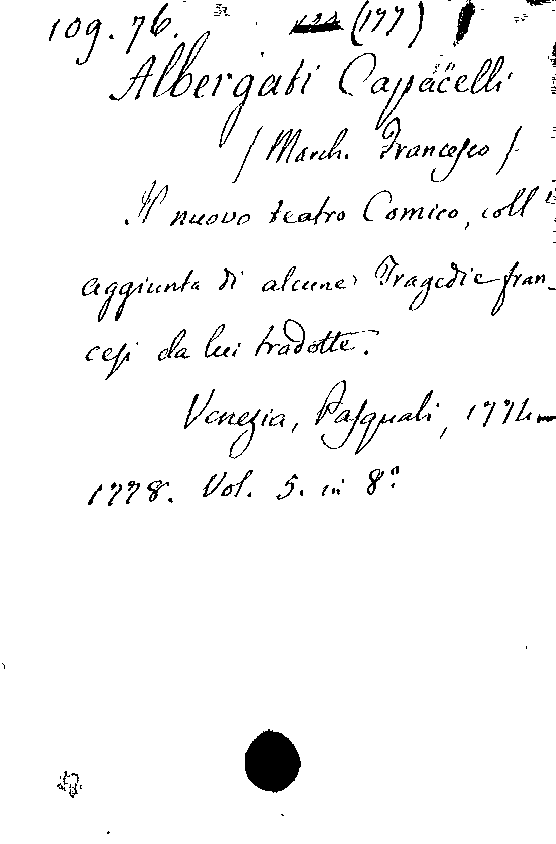 109. 76. (177)
Albergati Capacelli
/ March. Francesco /
Il nuovo teatro Comico, coll'
aggiunta di alcune Tragedie fran-
cesi da lui tradotte.
Venezia, Pasquali, 1774-
1778. Vol. 5. in 8º